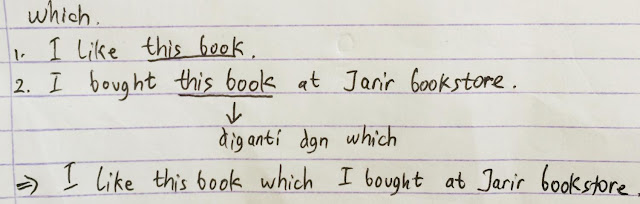 which.
1. I like this book.
2. I bought this book at Jarir bookstore.
↓
diganti dgn which
⇒ I like this book which I bought at Jarir bookstore.